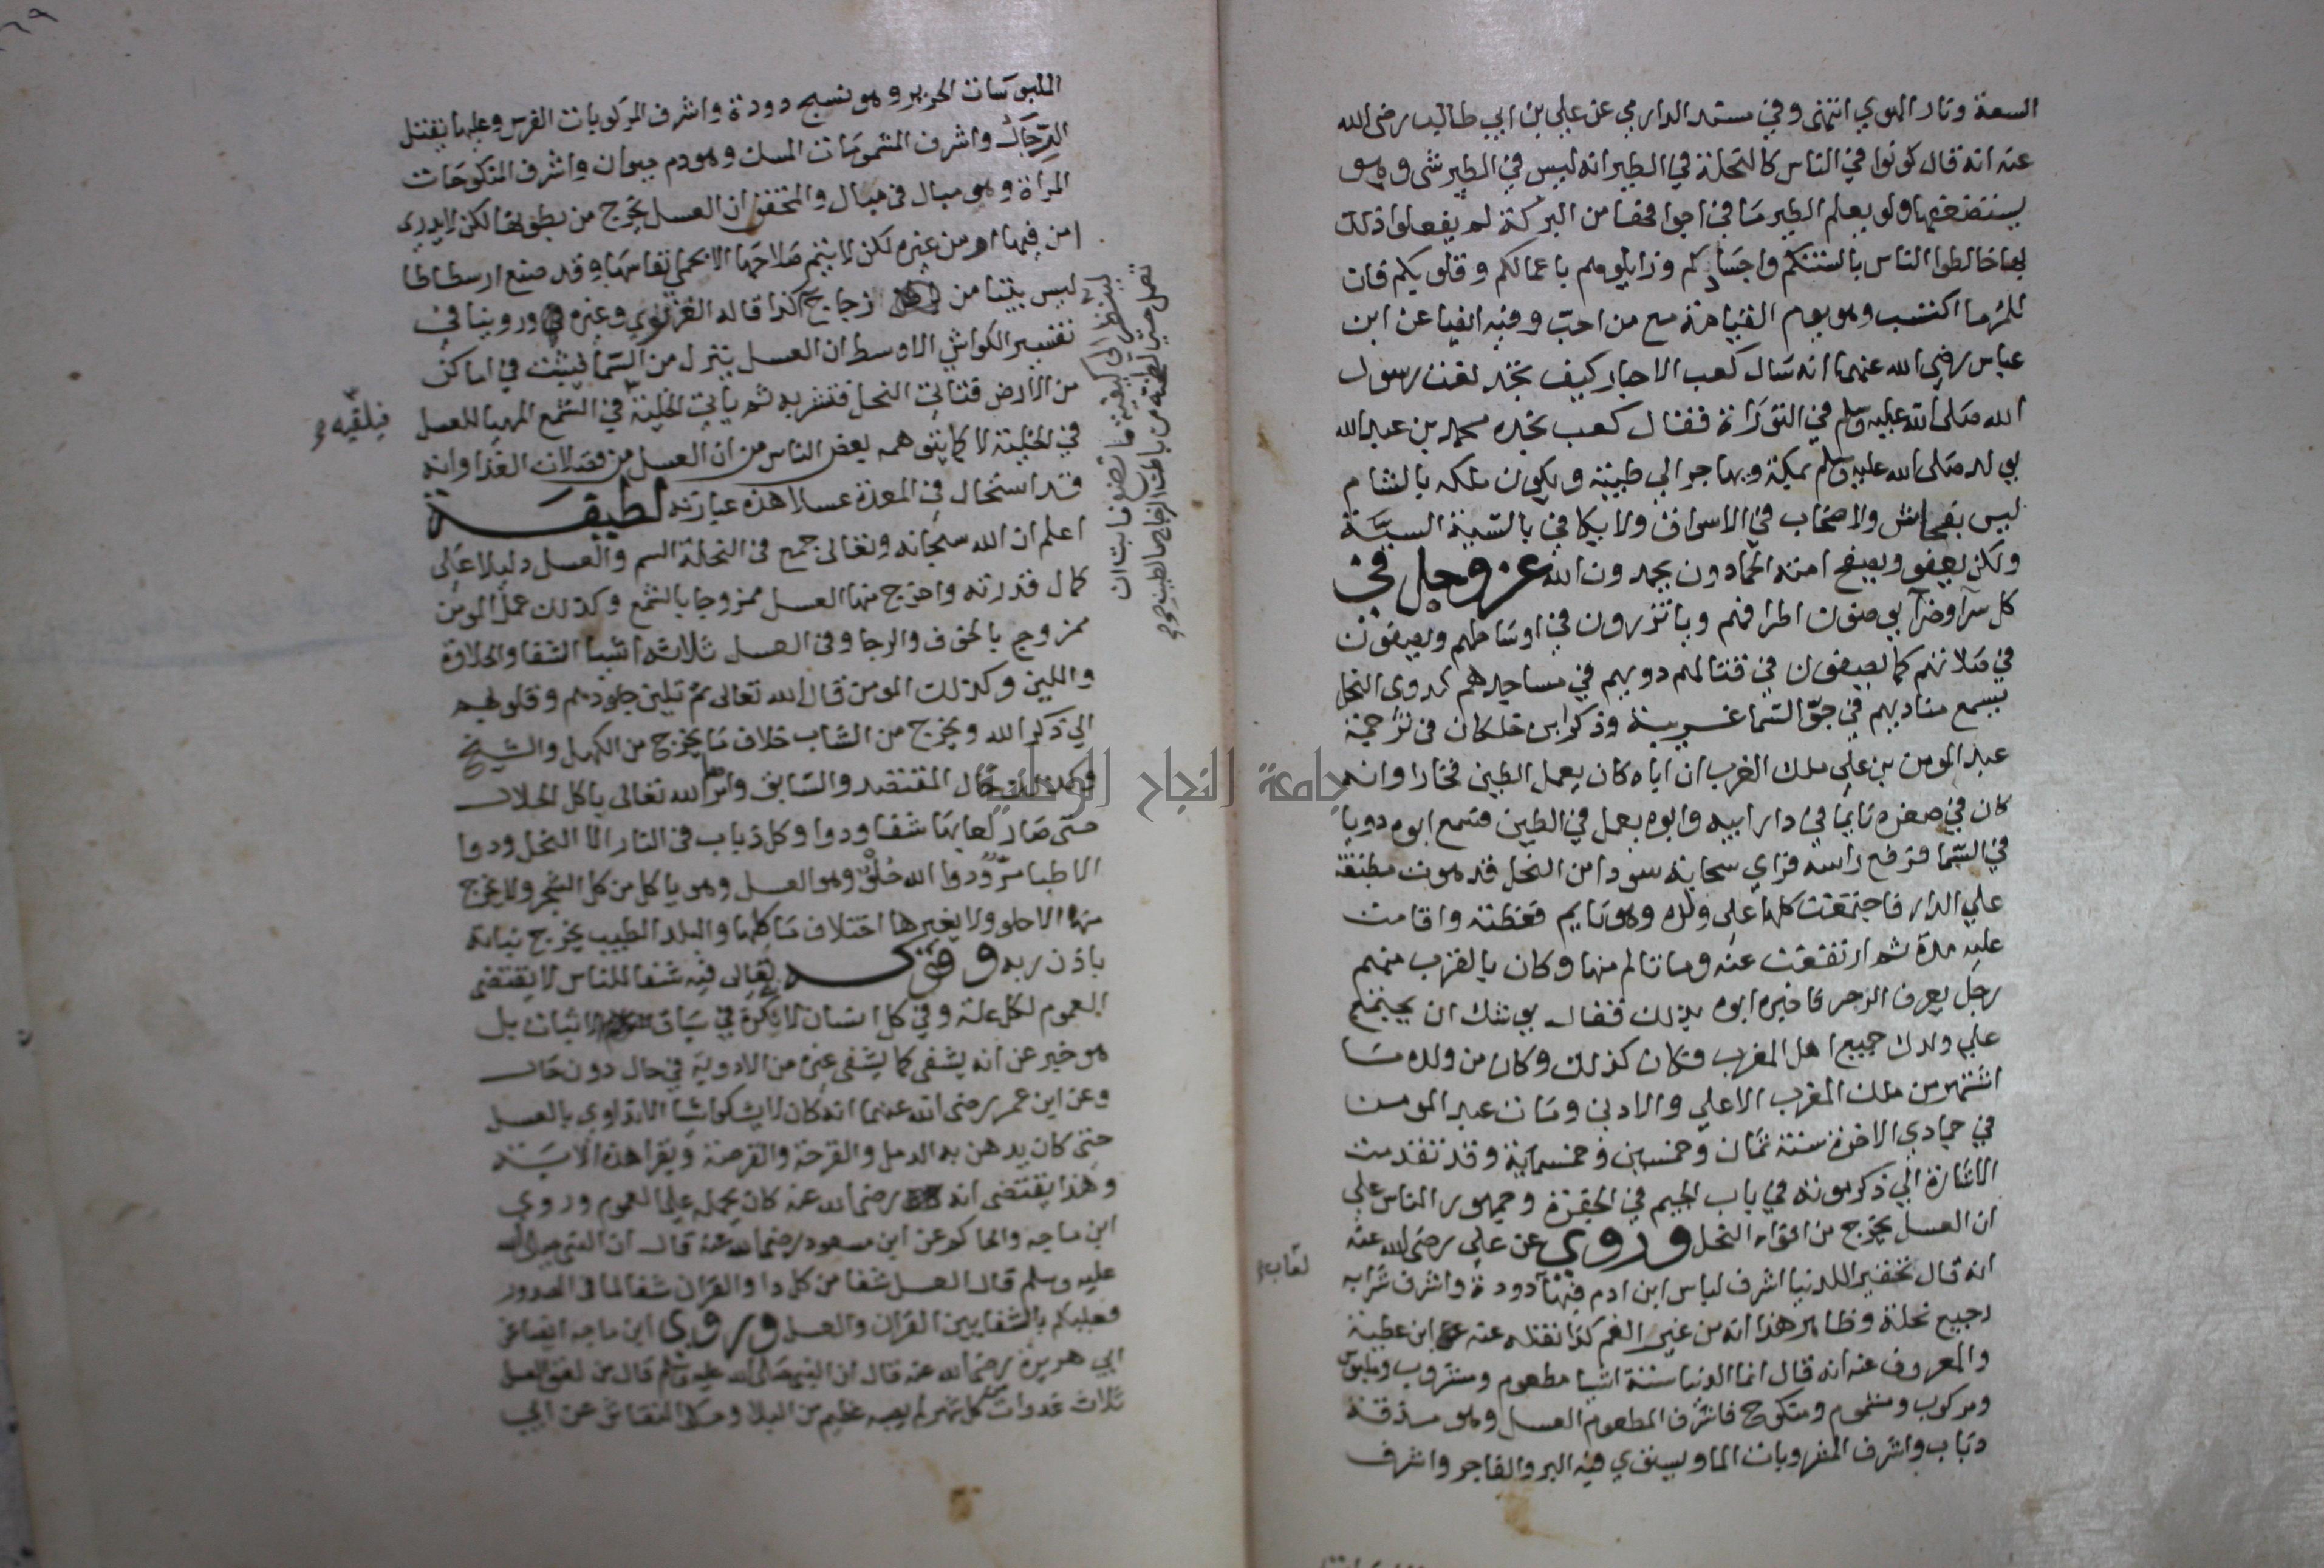 السعة ونار الهوي انتهى وفي مسند الدارمي عن علي بن ابي طالب رضي الله
عنه انه قال كونوا في الناس كالنحلة في الطير انه ليس في الطير شي وهو
يستضعفها ولو يعلم الطير ما في اجوافها من البركة لم يفعلوا ذلك
بها خالطوا الناس بالسنتكم واجسادكم وزايلوهم باعمالكم وقلوبكم فان
للمرء ما اكتسب وهو يوم القيامة مع من احب وفيه ايضا عن ابن
عباس رضي الله عنهما انه سال كعب الاحبار كيف تجد نعت رسول
الله صلى الله عليه وسلم في التوراة فقال كعب نجده محمد بن عبد الله
يولد صلى الله عليه وسلم بمكة ويهاجر الي طيبة ويكون ملكه بالشام
ليس بفحاش ولا صخاب في الاسواق ولا يكافي بالسيئة السيئة
ولكن يعفو ويصفح امته الحمادون يحمدون الله عز وجل في
كل سرآ وضرآ يوضئون اطرافهم وياتزرون في اوساطهم ويصفون
في صلاتهم كما يصفون في قتالهم دويهم في مساجدهم كدوي النحل
يسمع مناديهم في جو السما غريبة وذكر ابن خلكان في ترجمة
عبد المومن بن علي ملك الغرب ان اباه كان يعمل الطين فخارا وانه
كان في صغره نايما في دار ابيه وابوه يعمل في الطين فسمع ابوه دويا
في السما فرفع راسه فراي سحابة سودا من النحل قد هوت مطبقة
علي الدار فاجتمعت كلها على ولده وهو نايم فغطته واقامت
عليه مدة ثم ارتفعت عنه وما تالم منها وكان بالقرب منهم
رجل يعرف الزجر فاخبره ابوه بذلك فقال يوشك ان يجتمع
علي ولدك جميع اهل المغرب فكان كذلك وكان من ولده ما
اشتهر من ملك المغرب الاعلي والادنى ومات عبد المومن
في جمادي الاخرة سنة ثمان وخمسين وخمسماية وقد تقدمت
الاشارة الي ذكر موته في باب الجيم في الجفرة وجمهور الناس علي
ان العسل يخرج من افواه النحل وروي عن علي رضي الله عنه
انه قال تحقيرا للدنيا اشرف لباس ابن ادم فيها دودة واشرف شرابه
لعاب
رجيع نحلة وظاهر هذا انه من غير الفم كذا نقله عنه ابن عطية
والمعروف عنه انه قال انما الدنيا ستة اشيا مطعوم ومشروب وملبوس
ومركوب ومشموم ومنكوح فاشرف المطعوم العسل وهو مذقة
ذباب واشرف المشروبات الما ويستوي فيه البر والفاجر واشرف
الملبوسات الحرير وهو نسج دودة واشرف المركوبات الفرس وعليها يقتل
الرجال واشرف المشمومات المسك وهو دم حيوان واشرف المنكوحات
المراة وهو مبال في مبال والمحقق ان العسل يخرج من بطونها لكن لا يدري
امن فيها او من غيره لكن لا يتم صلاحها الا بحمي انفاسها وقد صنع ارسطاطا
ليس بيتا من زجاج
لينظر الي كيفية ما تصنع فابت ان
تعمل حتى لطخته من باطن الزجاج بالطين
كذا قاله الغزنوي وغيره وروينا في
تفسير الكواشي الاوسط ان العسل ينزل من السما فيثبت في اماكن
من الارض فتاتي النحل فتشربه ثم ياتي الخلية في الشمع المهيا للعسل
فيلقيه
في الخلية لا كما يتوهمه بعض الناس من ان العسل من فضلات الغذا وانه
قد استحال في المعدة عسلا هذه عبارته لطيفة
اعلم ان الله سبحانه وتعالى جمع في النحلة السم والعسل دليلا علي
كمال قدرته واخرج منها العسل ممزوجا بالشمع وكذلك عمل المومن
ممزوج بالخوف والرجا وفي العسل ثلاثة اشيا الشفا والحلاوة
واللين وكذلك المومن قال الله تعالى ثم تلين جلودهم وقلوبهم
الي ذكر الله ويخرج من الشاب خلاف ما يخرج من الكهل والشيخ
وكذلك حال المقتصد والسابق وامر الله تعالى ياكل الحلال
حتى صار لعابها شفا ودوا وكل ذباب في النار الا النحل ودوا
الاطبا مر ودوا الله حلو وهو العسل وهو ياكل من كل الشجر ولا يخرج
منها الا حلو ولا يغيرها اختلاف ماكلها والبلد الطيب يخرج نباته
باذن ربه وقوله تعالى فيه شفا للناس لا يقتضي
العموم لكل علة وفي كل انسان لانه نكرة في سياق الاثبات بل
هو خبر عن انه يشفي كما يشفي غيره من الادوية في حال دون حال
وعن ابن عمر رضي الله عنهما انه كان لا يشكو شيا الا تداوي بالعسل
حتى كان يدهن به الدمل والقرحة والقرصة ويقرا هذه الاية
وهذا يقتضي انه رضي الله عنه كان يحمله علي العموم وروي
ابن ماجه والحاكم عن ابن مسعود رضي الله عنه قال ان النبي صلى الله
عليه وسلم قال العسل شفا من كل دا والقران شفا لما في الصدور
فعليكم بالشفايين القران والعسل وروي ابن ماجه ايضا عن
ابي هريرة رضي الله عنه قال ان النبي صلى الله عليه وسلم قال من لعق العسل
ثلاث غدوات كل شهر لم يصبه عظيم من البلا وحكي النقاش عن ابي
جامعة النجاح الوطنية